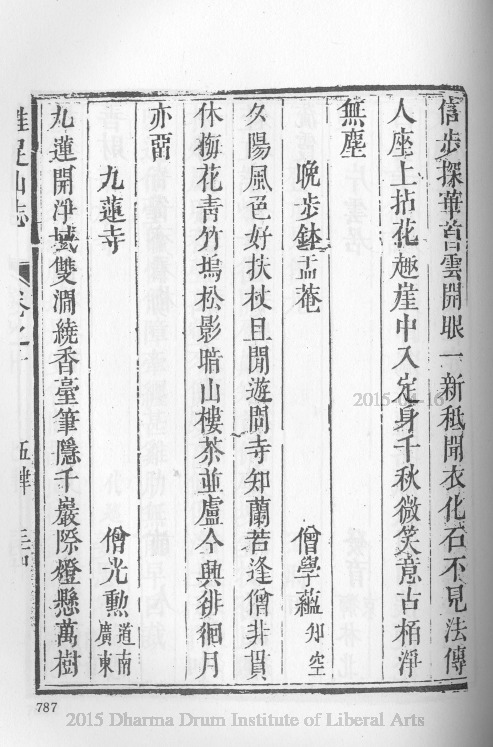 信步探華首雲開眼一新秪聞衣化石不見法傳
人座上拈花趣崖中入定身千秋微笑意古栢淨
無塵
晚步鉢盂菴 僧學蘊 知空
夕陽風色好扶杖且閒遊問寺知蘭若逢僧非貫
休梅花青竹塢松影暗山樓茶並盧仝興徘徊月
亦畱
九蓮寺 僧光勲 道南 廣東
九蓮開淨域雙澗繞香臺筆隱千巖際燈懸萬樹
雞足山志 卷之十 律
787
2015-04-16
2015 Dharma Drum Institute of Liberal Arts